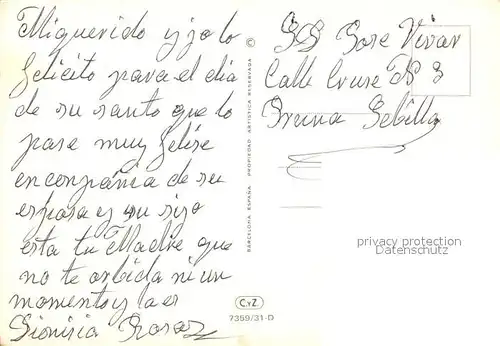 Mi querido yjo lo
felicito para el dia
de su santo que lo
pase muy felise
en conpañia de su
esposa y su rijo
esta tu Madre que
no te orbida ni un
momento y la es
Dionisia
SD Jose Vivar
Calle Cruse Nº 8
Bruna Sebilla
©
BARCELONA ESPAÑA PROPIEDAD ARTISTICA RESERVADA
C.Y.Z.
7359/31-D
privacy protection
Datenschutz